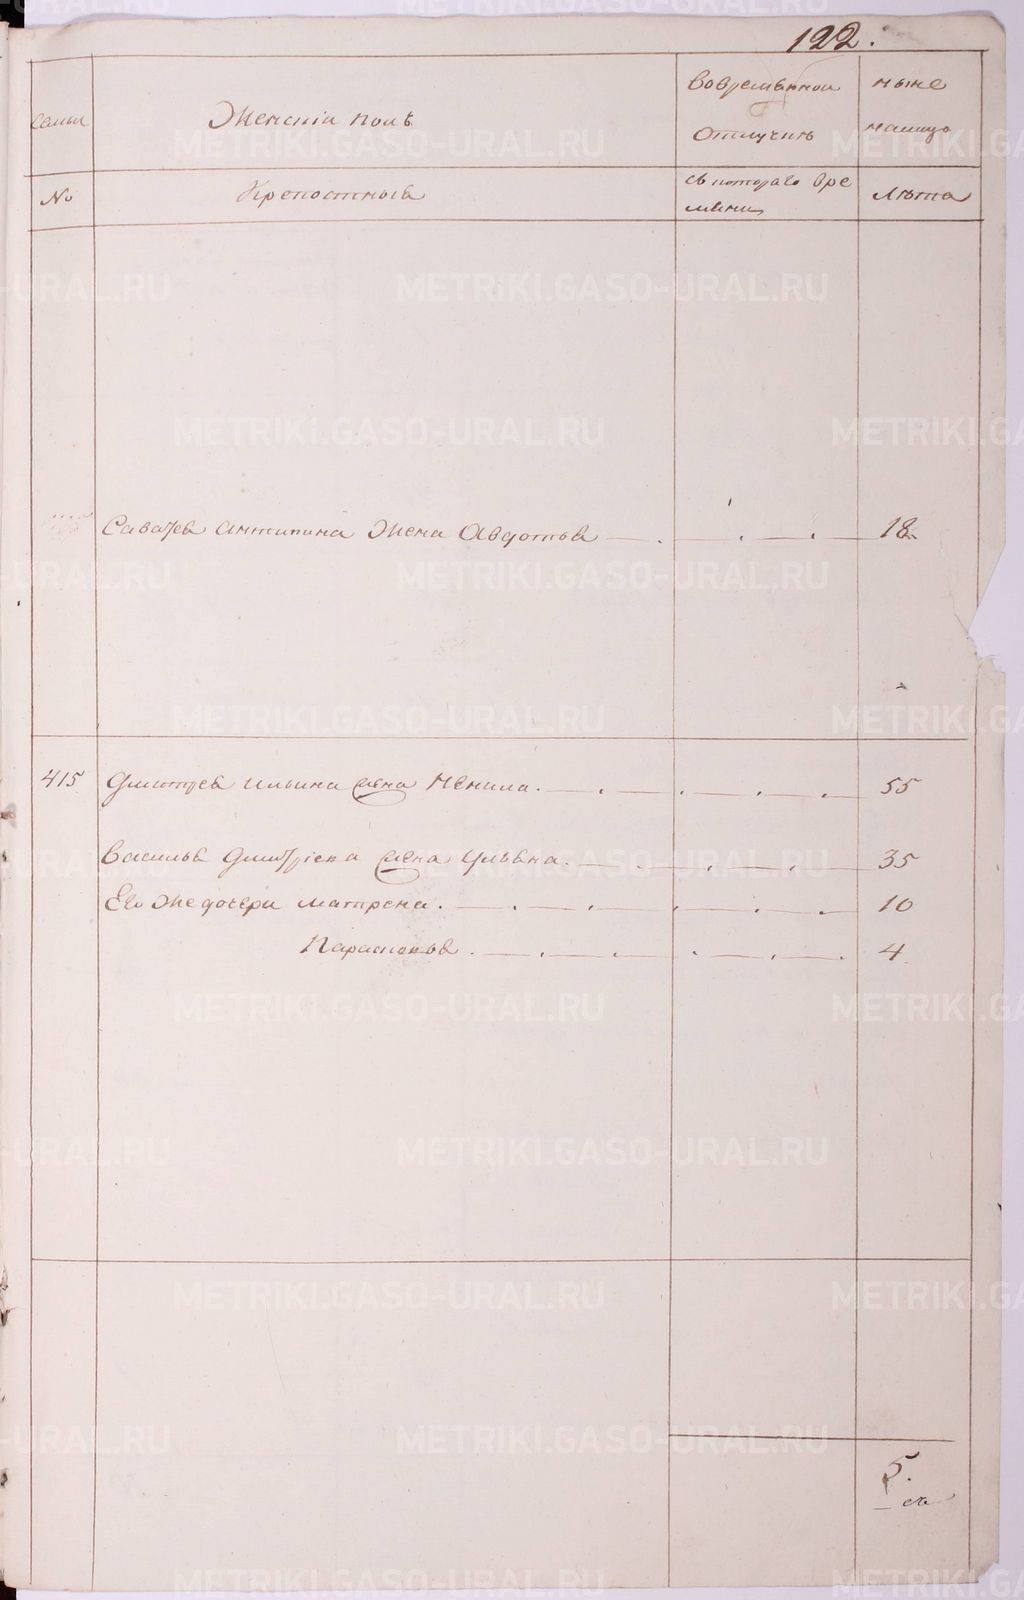 122.
семьи
Женскiй полъ
вовременной
отлучкѣ
ныне
налицо
№
Крепостныя
съ котораго вре
мени
Лѣта
Саватея Антипина Жена Авдотья 18
415 Дмитрея Ильина жена Ненила. 55
Василья Дмитрiева жена Ульяна. 35
Его же дочери Матрена. 10
Парасковья. 4
5.
METRIKI.GASO-URAL.RU